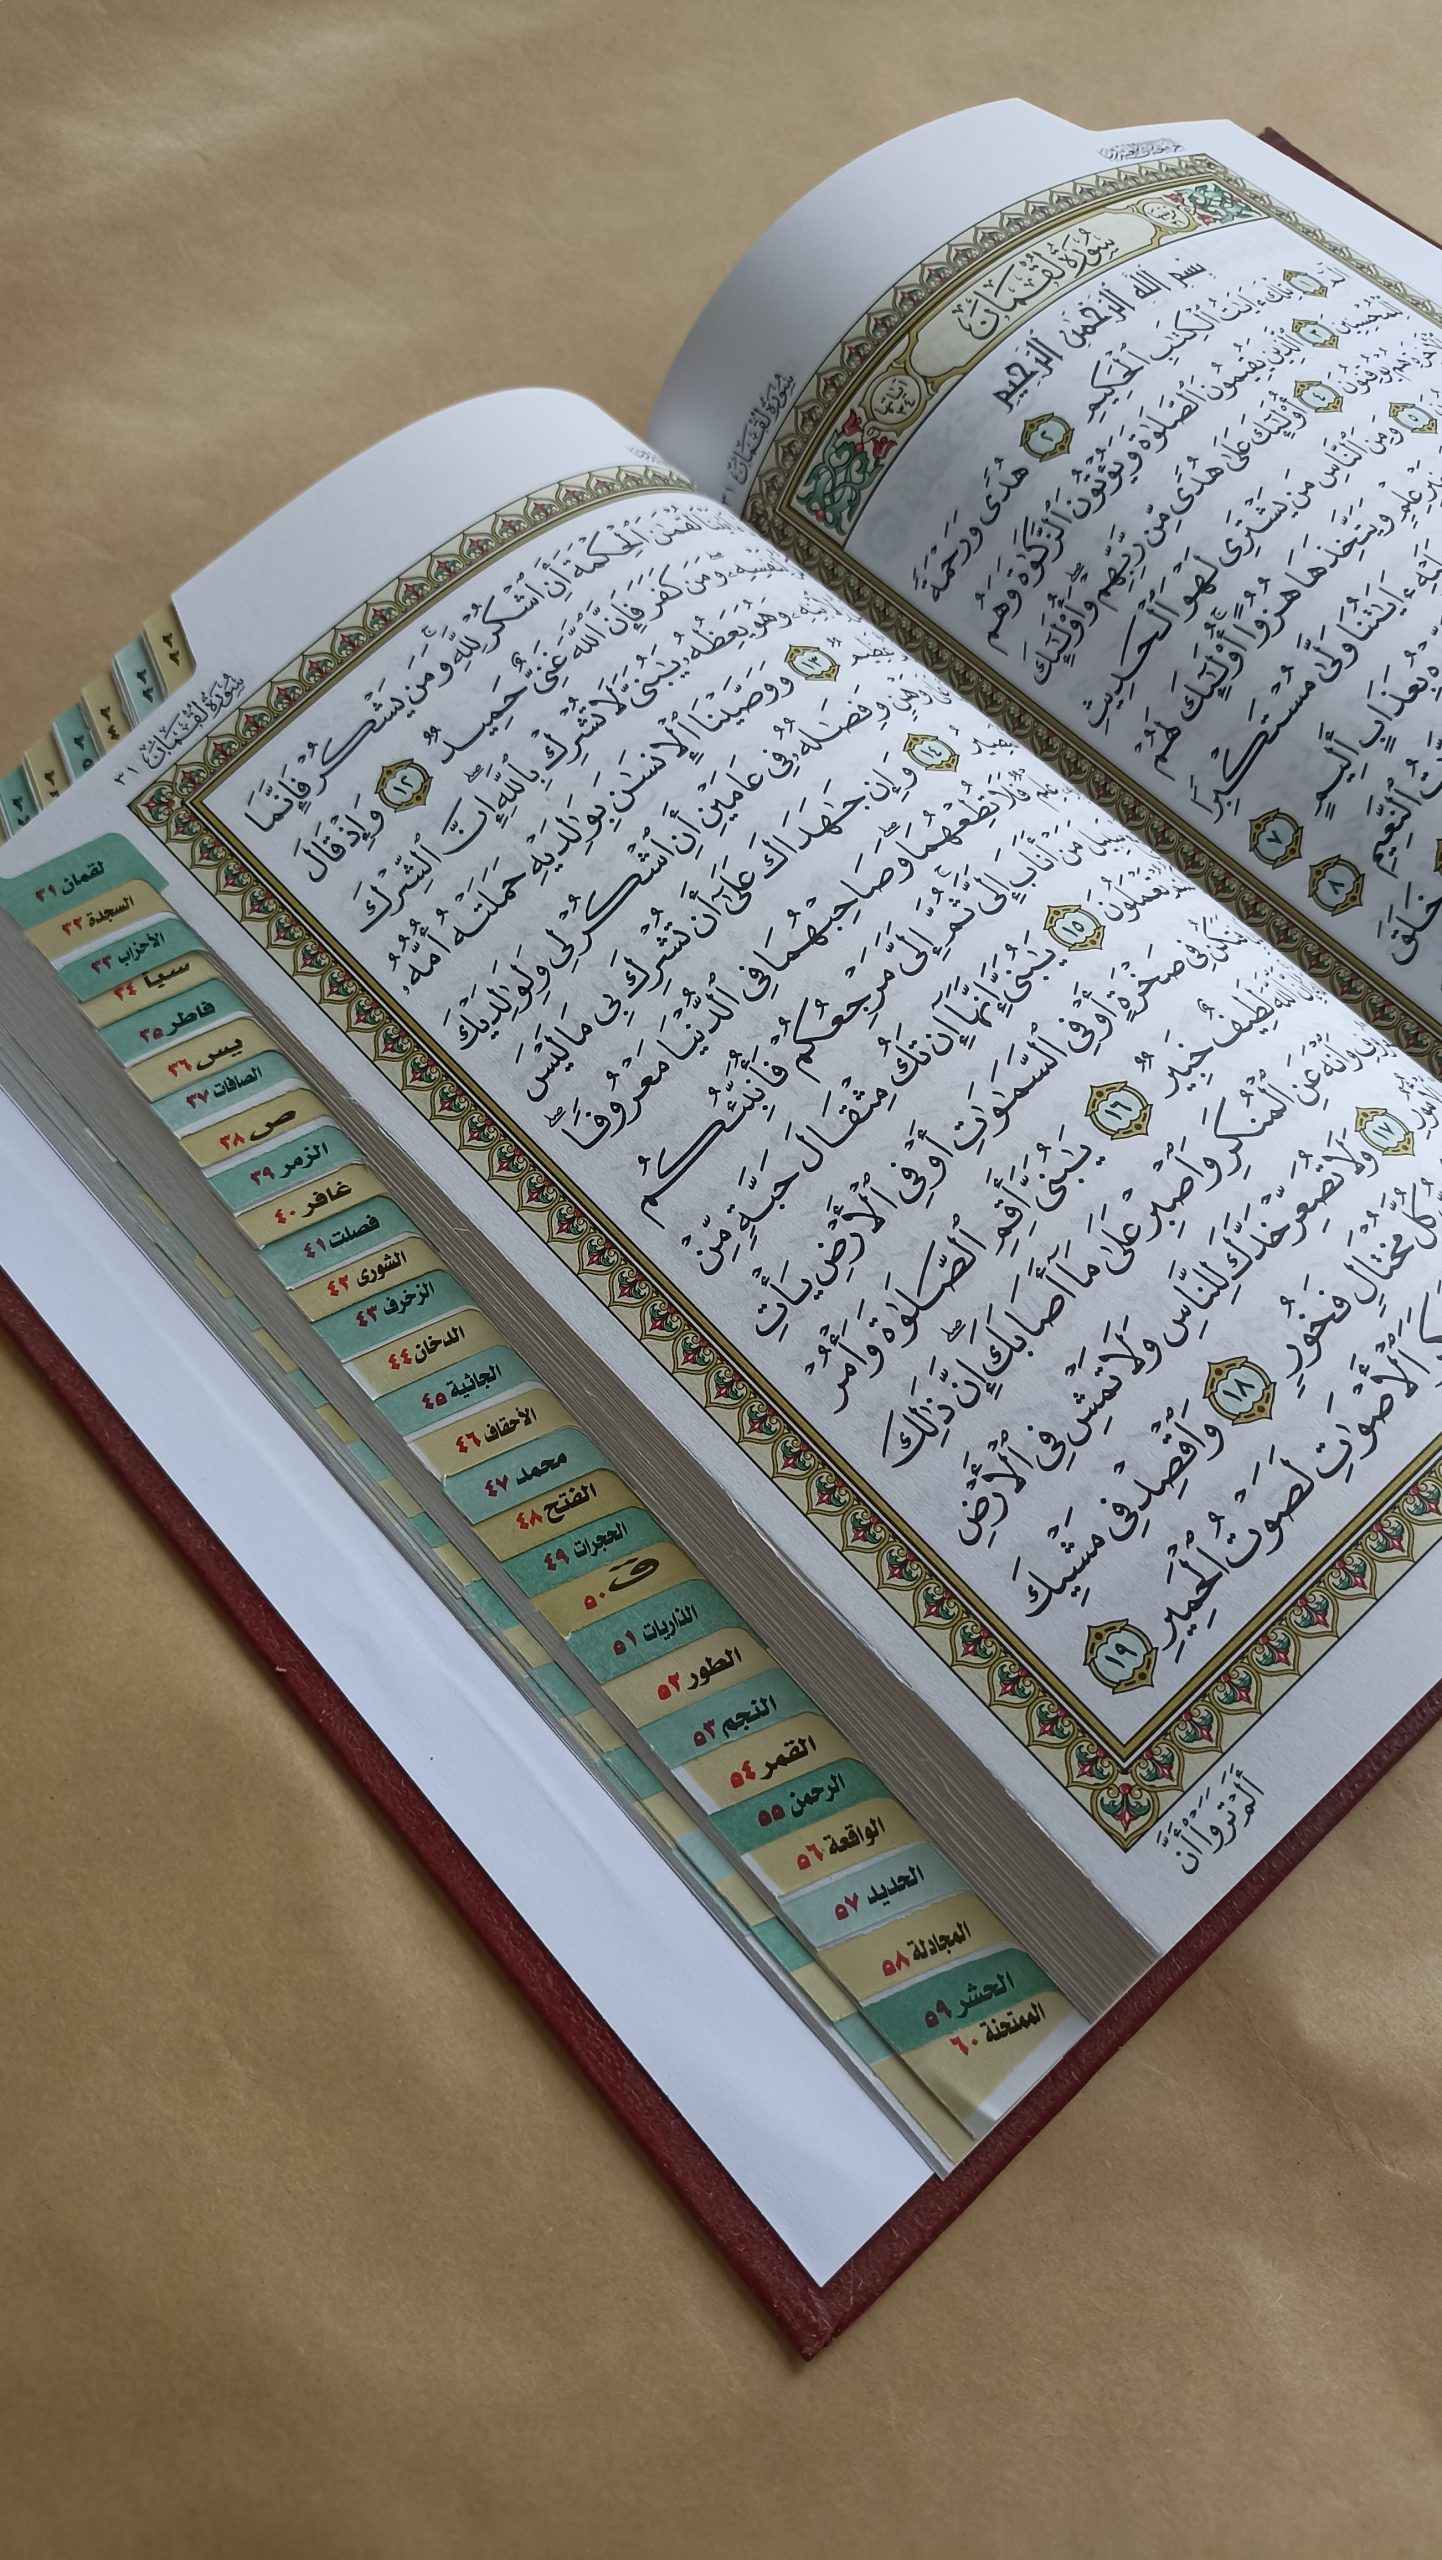 سُورَةُ لُقْمَانَ
بِسْمِ اللَّهِ الرَّحْمَٰنِ الرَّحِيمِ
الٓمٓ ١ تِلْكَ ءَايَٰتُ ٱلْكِتَٰبِ ٱلْحَكِيمِ ٢ هُدًى وَرَحْمَةً
لِّلْمُحْسِنِينَ ٣ ٱلَّذِينَ يُقِيمُونَ ٱلصَّلَوٰةَ وَيُؤْتُونَ ٱلزَّكَوٰةَ وَهُم
بِٱلْءَاخِرَةِ هُمْ يُوقِنُونَ ٤ أُو۟لَٰٓئِكَ عَلَىٰ هُدًى مِّن رَّبِّهِمْ وَأُو۟لَٰٓئِكَ
٥ وَمِنَ ٱلنَّاسِ مَن يَشْتَرِى لَهْوَ ٱلْحَدِيثِ
بِغَيْرِ عِلْمٍ وَيَتَّخِذَهَا هُزُوًا أُو۟لَٰٓئِكَ لَهُمْ
عَلَيْهِ ءَايَٰتُنَا وَلَّىٰ مُسْتَكْبِرًا
بِعَذَابٍ أَلِيمٍ ٧
ٱلنَّعِيمِ ٨
خَلَقَ
سُورَةُ لُقْمَانَ ٣١
ءَاتَيْنَا لُقْمَٰنَ ٱلْحِكْمَةَ أَنِ ٱشْكُرْ لِلَّهِ وَمَن يَشْكُرْ فَإِنَّمَا
لِنَفْسِهِۦ وَمَن كَفَرَ فَإِنَّ ٱللَّهَ غَنِىٌّ حَمِيدٌ ١٢ وَإِذْ قَالَ
لِٱبْنِهِۦ وَهُوَ يَعِظُهُۥ يَٰبُنَىَّ لَا تُشْرِكْ بِٱللَّهِ إِنَّ ٱلشِّرْكَ
عَظِيمٌ ١٣ وَوَصَّيْنَا ٱلْإِنسَٰنَ بِوَٰلِدَيْهِ حَمَلَتْهُ أُمُّهُۥ
عَلَىٰ وَهْنٍ وَفِصَٰلُهُۥ فِى عَامَيْنِ أَنِ ٱشْكُرْ لِى وَلِوَٰلِدَيْكَ
ٱلْمَصِيرُ ١٤ وَإِن جَٰهَدَاكَ عَلَىٰٓ أَن تُشْرِكَ بِى مَا لَيْسَ
بِهِۦ عِلْمٌ فَلَا تُطِعْهُمَا وَصَاحِبْهُمَا فِى ٱلدُّنْيَا مَعْرُوفًا
سَبِيلَ مَنْ أَنَابَ إِلَىَّ ثُمَّ إِلَىَّ مَرْجِعُكُمْ فَأُنَبِّئُكُم
تَعْمَلُونَ ١٥ يَٰبُنَىَّ إِنَّهَآ إِن تَكُ مِثْقَالَ حَبَّةٍ مِّنْ
فَتَكُن فِى صَخْرَةٍ أَوْ فِى ٱلسَّمَٰوَٰتِ أَوْ فِى ٱلْأَرْضِ يَأْتِ
إِنَّ ٱللَّهَ لَطِيفٌ خَبِيرٌ ١٦ يَٰبُنَىَّ أَقِمِ ٱلصَّلَوٰةَ وَأْمُرْ
وَٱنْهَ عَنِ ٱلْمُنكَرِ وَٱصْبِرْ عَلَىٰ مَآ أَصَابَكَ إِنَّ ذَٰلِكَ
ٱلْأُمُورِ ١٧ وَلَا تُصَعِّرْ خَدَّكَ لِلنَّاسِ وَلَا تَمْشِ فِى ٱلْأَرْضِ
كُلَّ مُخْتَالٍ فَخُورٍ ١٨ وَٱقْصِدْ فِى مَشْيِكَ
ٱلْأَصْوَٰتِ لَصَوْتُ ٱلْحَمِيرِ ١٩
أَلَمْ تَرَوْا۟ أَنَّ
سُورَةُ لُقْمَانَ ٣١
لقمان ٣١
السجدة ٣٢
الأحزاب ٣٣
سبأ ٣٤
فاطر ٣٥
يس ٣٦
الصافات ٣٧
ص ٣٨
الزمر ٣٩
غافر ٤٠
فصلت ٤١
الشورى ٤٢
الزخرف ٤٣
الدخان ٤٤
الجاثية ٤٥
الأحقاف ٤٦
محمد ٤٧
الفتح ٤٨
الحجرات ٤٩
ق ٥٠
الذاريات ٥١
الطور ٥٢
النجم ٥٣
القمر ٥٤
الرحمن ٥٥
الواقعة ٥٦
الحديد ٥٧
المجادلة ٥٨
الحشر ٥٩
الممتحنة ٦٠